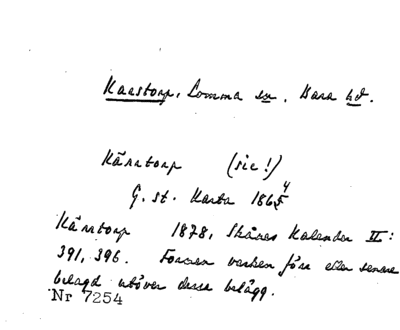 Karstorp, Lomma sn, Bara hd.
Kärrtorp (sic!)
G. st. Karta 1865 4
Kärrtorp 1878, Skånes Kalender II:
391, 396. Formen varken förr eller senare
belagd utöver dessa belägg.
Nr 7254